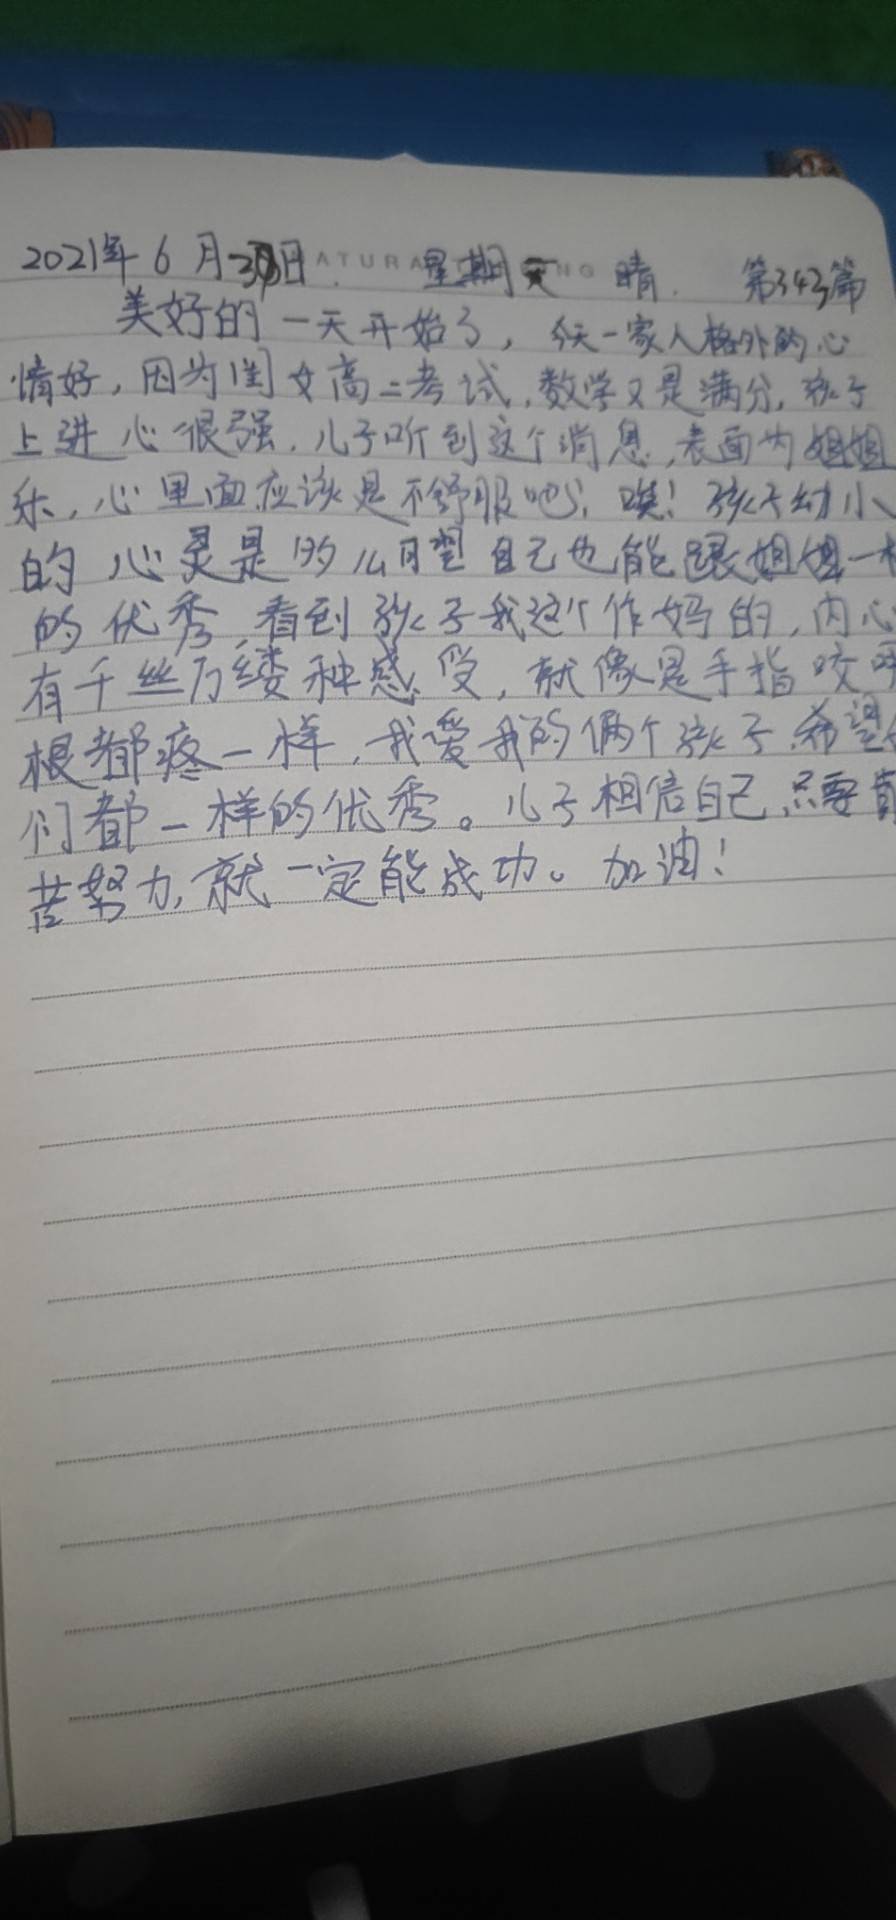 2021年6月 日 星期天 晴 第343篇
美好的一天开始了，今天一家人格外的心
情好，因为闺女高二考试，数学又是满分，孩子
上进心很强，儿子听到这个消息，表面为姐姐
乐，心里面应该是不舒服吧，唉！孩子幼小
的心灵是的 自己也能跟姐姐一
的优秀，看到孩子我这个作妈的，内心
有千丝万缕种感受，就像是手指咬
根都疼一样，我爱我的俩个孩子，希望
们都一样的优秀。儿子相信自己，只要
苦努力，就一定能成功。加油！